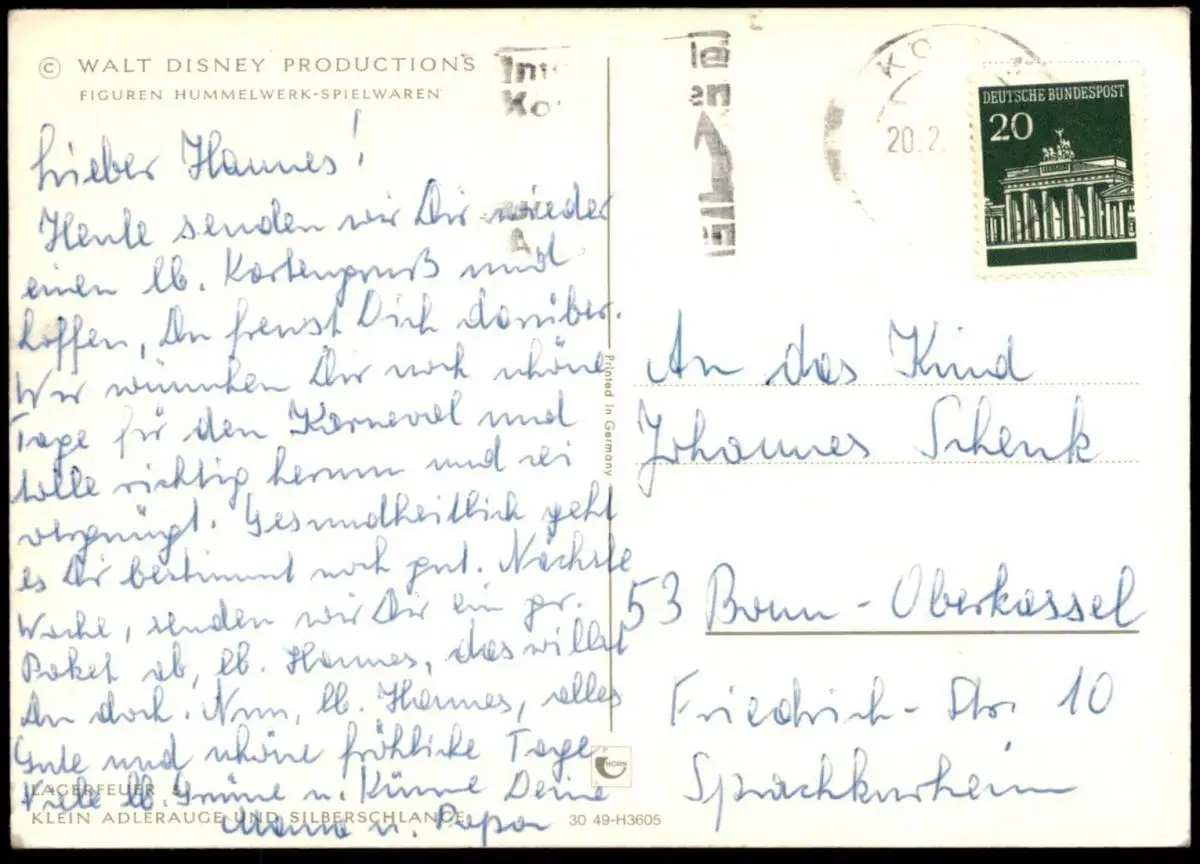 © WALT DISNEY PRODUCTIONS
FIGUREN HUMMELWERK-SPIELWAREN
Lieber Hannes!
Heute senden wir Dir wieder
einen lb. Kartengruß und
hoffen, Du freust Dich darüber.
Wir wünschen Dir noch schöne
Tage für den Karneval und
tolle richtig herum und sei
vergnügt. Gesundheitlich geht
es Dir bestimmt noch gut. Nächste
Woche, senden wir Dir ein gr.
Paket ab, lb. Hannes, das willst
Du doch. Nun, lb. Hannes, alles
Gute und schöne fröhliche Tage.
Viele lb. Grüße u. Küsse Deine
Mama u. Papa
LAGERFEUER
KLEIN ADLERAUGE UND SILBERSCHLANGE
30 49-H3605
HORN
Printed in Germany
20.2.
DEUTSCHE BUNDESPOST
20
An das Kind
Johannes Schenk
53 Bonn-Oberkassel
Friedrich-Str. 10
Sprachkurheim